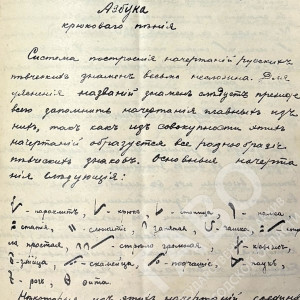 Азбука
крюковаго пѣнія
Система построенія начертаній русскихъ
пѣвческихъ знаменъ весьма несложна. Для
уясненія названій знаменъ слѣдуетъ прежде
всего запомнить начертанія главныхъ изъ
нихъ, такъ какъ изъ совокупности этихъ
начертаній образуется все разнообразіе
пѣвческихъ знаковъ. Основныя начерта
нія слѣдующія:
- параклитъ, - крюкъ, - стопица, - палка,
- статья, - сложитіе, - запятая, - чашка,
ла простая, - стрѣла громная, - ключъ,
- змійца, - скамейца, - подчашіе, - паукъ,
- рогъ, - фита.
Некоторые изъ этихъ начертаній